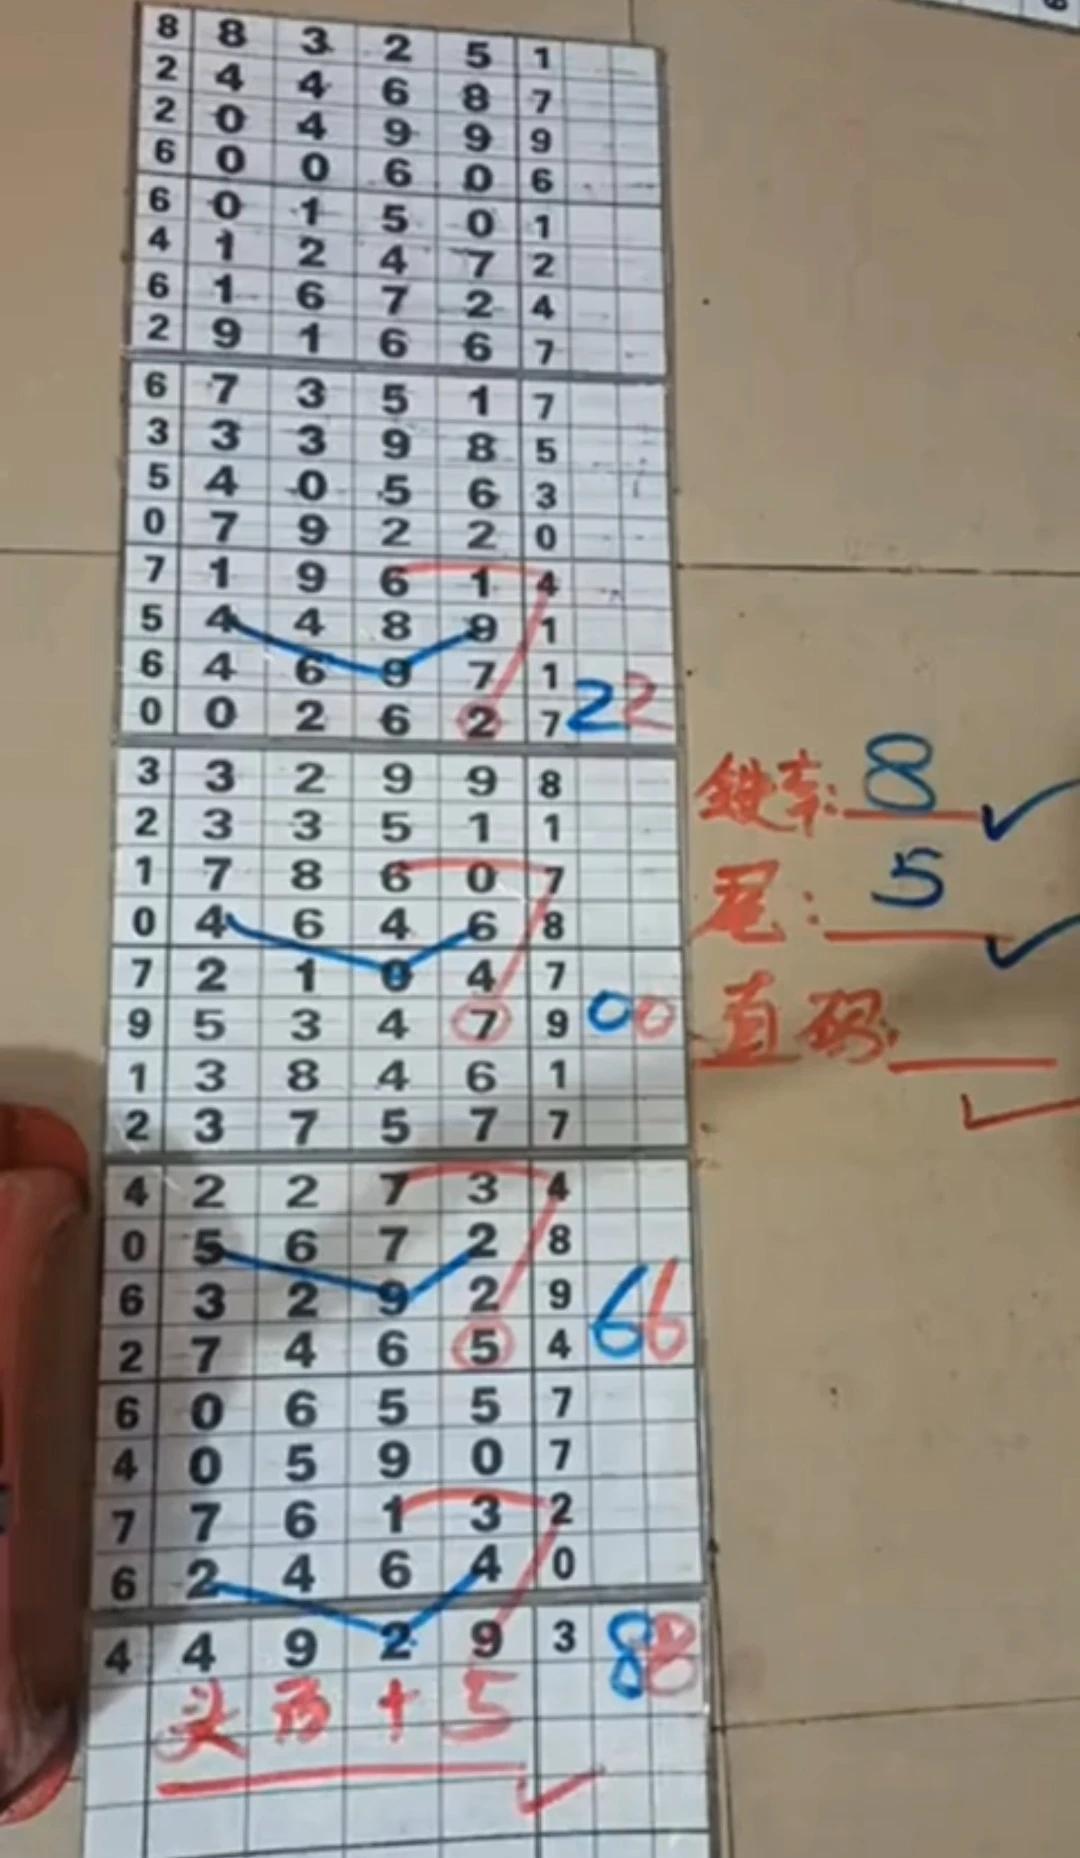 8 8 3 2 5 1
2 4 4 6 8 7
2 0 4 9 9 9
6 0 0 6 0 6
6 0 1 5 0 1
4 1 2 4 7 2
6 1 6 7 2 4
2 9 1 6 6 7
6 7 3 5 1 7
3 3 3 9 8 5
5 4 0 5 6 3
0 7 9 2 2 0
7 1 9 6 1 4
5 4 4 8 9 1
6 4 6 9 7 1
0 0 2 6 2 7 22
3 3 2 9 9 8
2 3 3 5 1 1
1 7 8 6 0 7
0 4 6 4 6 8
7 2 1 0 4 7
9 5 3 4 7 9 00
1 3 8 4 6 1
2 3 7 5 7 7
4 2 2 7 3 4
0 5 6 7 2 8
6 3 2 9 2 9
2 7 4 6 5 4 66
6 0 6 5 5 7
4 0 5 9 0 7
7 7 6 1 3 2
6 2 4 6 4 0
4 4 9 2 9 3 88
头 + 5
8
尾: 5
直码: